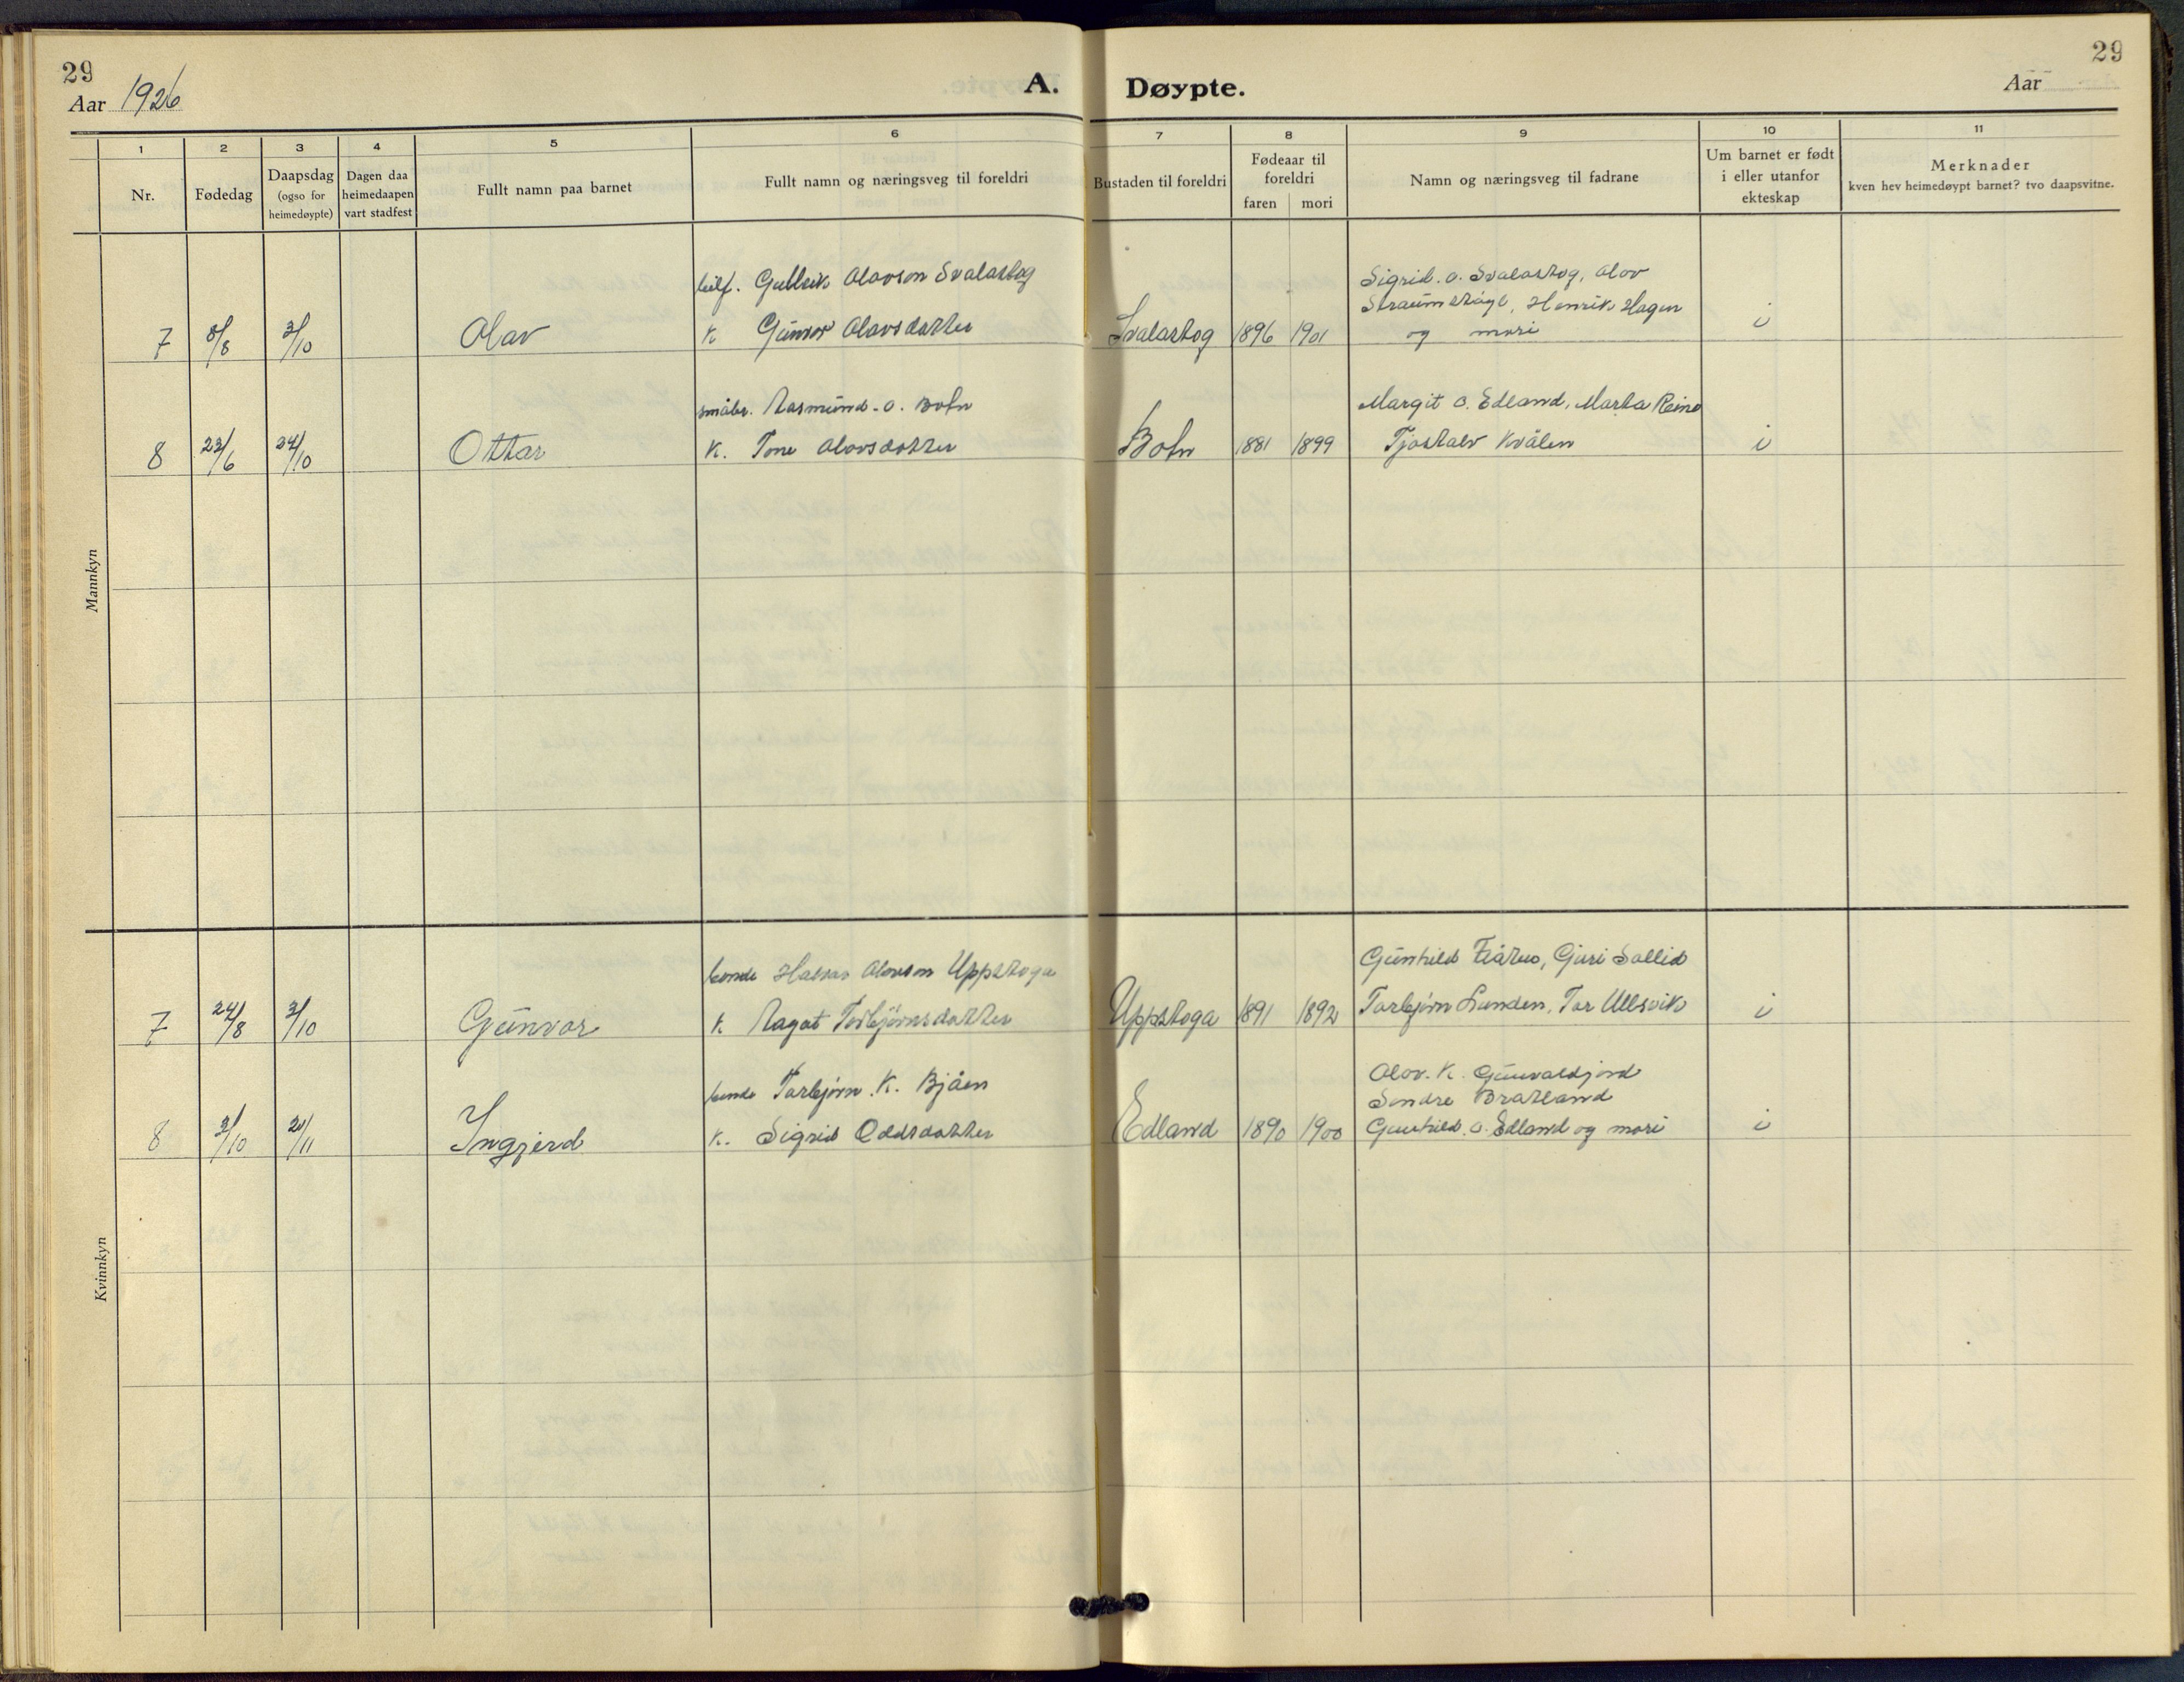 29
Aar 1926
A.
Døypte.
29
Aar
1
2
3
4
5
6
7
8
9
10
11
Nr.
Fødedag
Daapsdag
(ogso for
heimedøypte)
Dagen daa
heimedaapen
vart stadfest
Fullt namn paa barnet
Fullt namn og næringsveg til foreldri
Bustaden til foreldri
Fødeaar til
foreldri
faren
mori
Namn og næringsveg til fadrane
Um barnet er født
i eller utanfor
ekteskap
Merknader
kven hev heimedøypt barnet? tvo daapsvitne.
Mannkyn
Gulleik Olavson Svalastog
Sigrid. O. Svalastog, Olov
Henrik Hagen
7 8/8 3/10 Olav K Gunvor Olavsdotter Svalastog 1896 1901 og mori i
småbr. Aasmund. O. Botn
Margit O. Edland, Marta
8 23/6 24/10 Ottar K. Tone Olavsdotter Botn 1881 1899 Tjostalv Kvålen i
bonde Halvor Olavson Uppstoga
Gunhild Guri Sollid
7 24/8 3/10 Gunvor K Aagot Torbjørnsdotter Uppstoga 1891 1892 Torbjørn Lunden, Tor Ullsvik i
bonde Torbjørn. K. Bjåen
Olov. K. Gunvaldjord
Sondre Bratland
8 3/10 21/11 Ingjerd K. Sigrid Oddsdotter Edland 1890 1900 Gunhild. O. Edland og mori i
Kvinnkyn